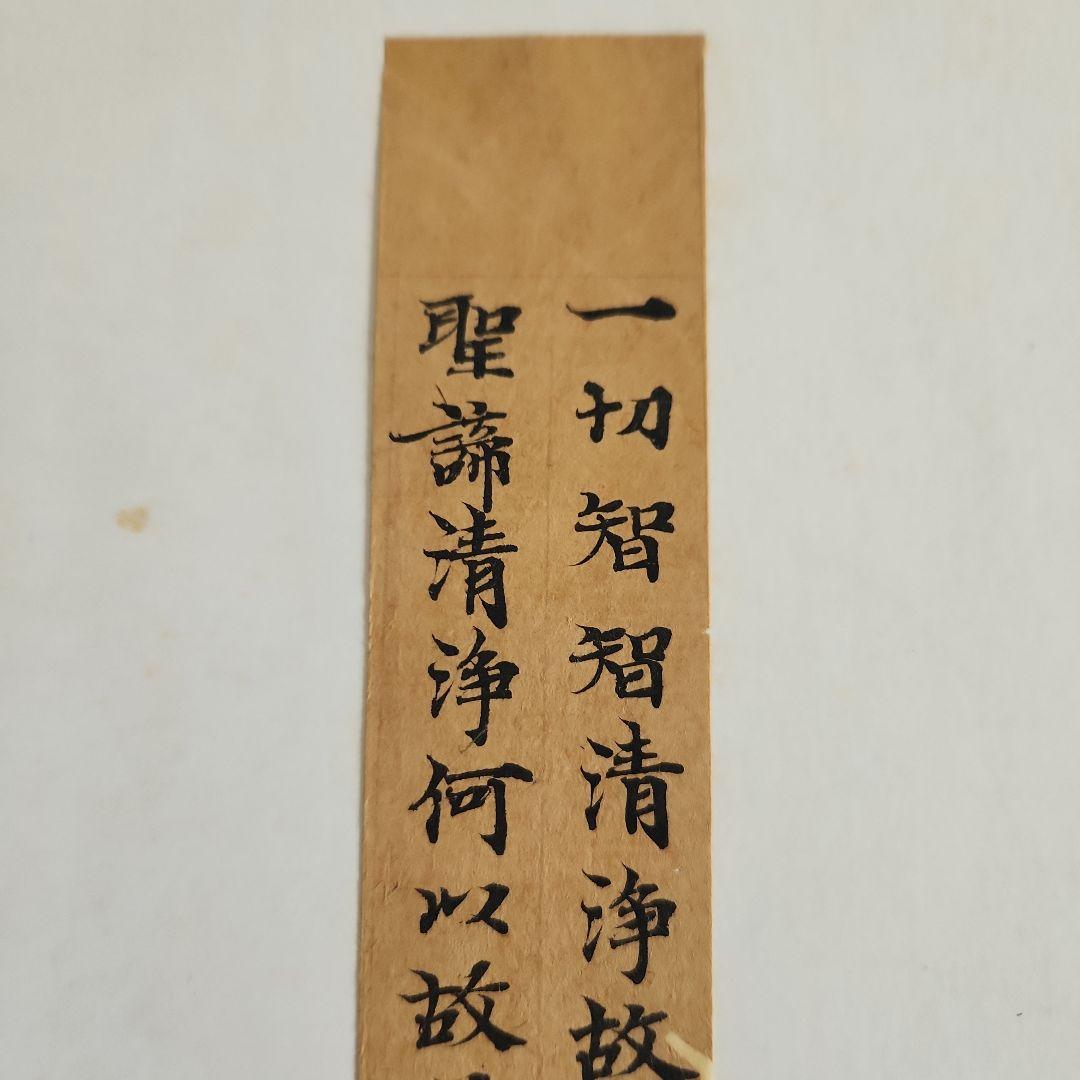 一切智智清浄故
聖諦清浄何以故